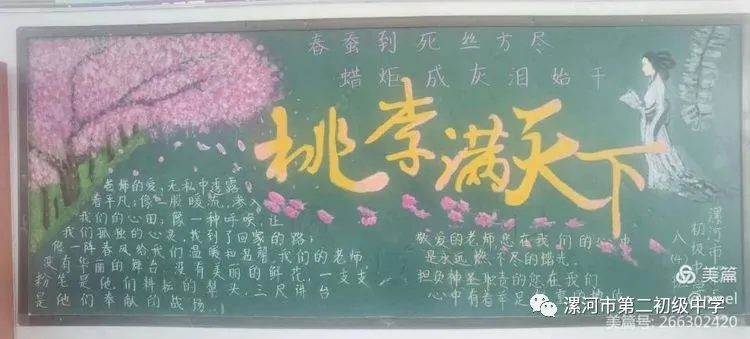 春蚕到死丝方尽
蜡炬成灰泪始干
桃李满天下
老师的爱,无私中透露
着平凡,像一股暖流,渗入
我们的心田;像一种呼唤,让
我们孤独的心灵,找到了回家的路;
像一阵春风给我们温暖和
我们的老师,
更有华丽的舞台,没有美丽的鲜花,一支支
粉笔是他们耕耘的犁头,三尺讲台
是他们奉献的战场
敬爱的老师您在我们的心中
是永远燃不尽的烛光
担负神圣职责的您在我们
心中有着举足
漯河市
初级中学
八(4)
美篇
漯河市第二初级中学
美篇号: 266302420